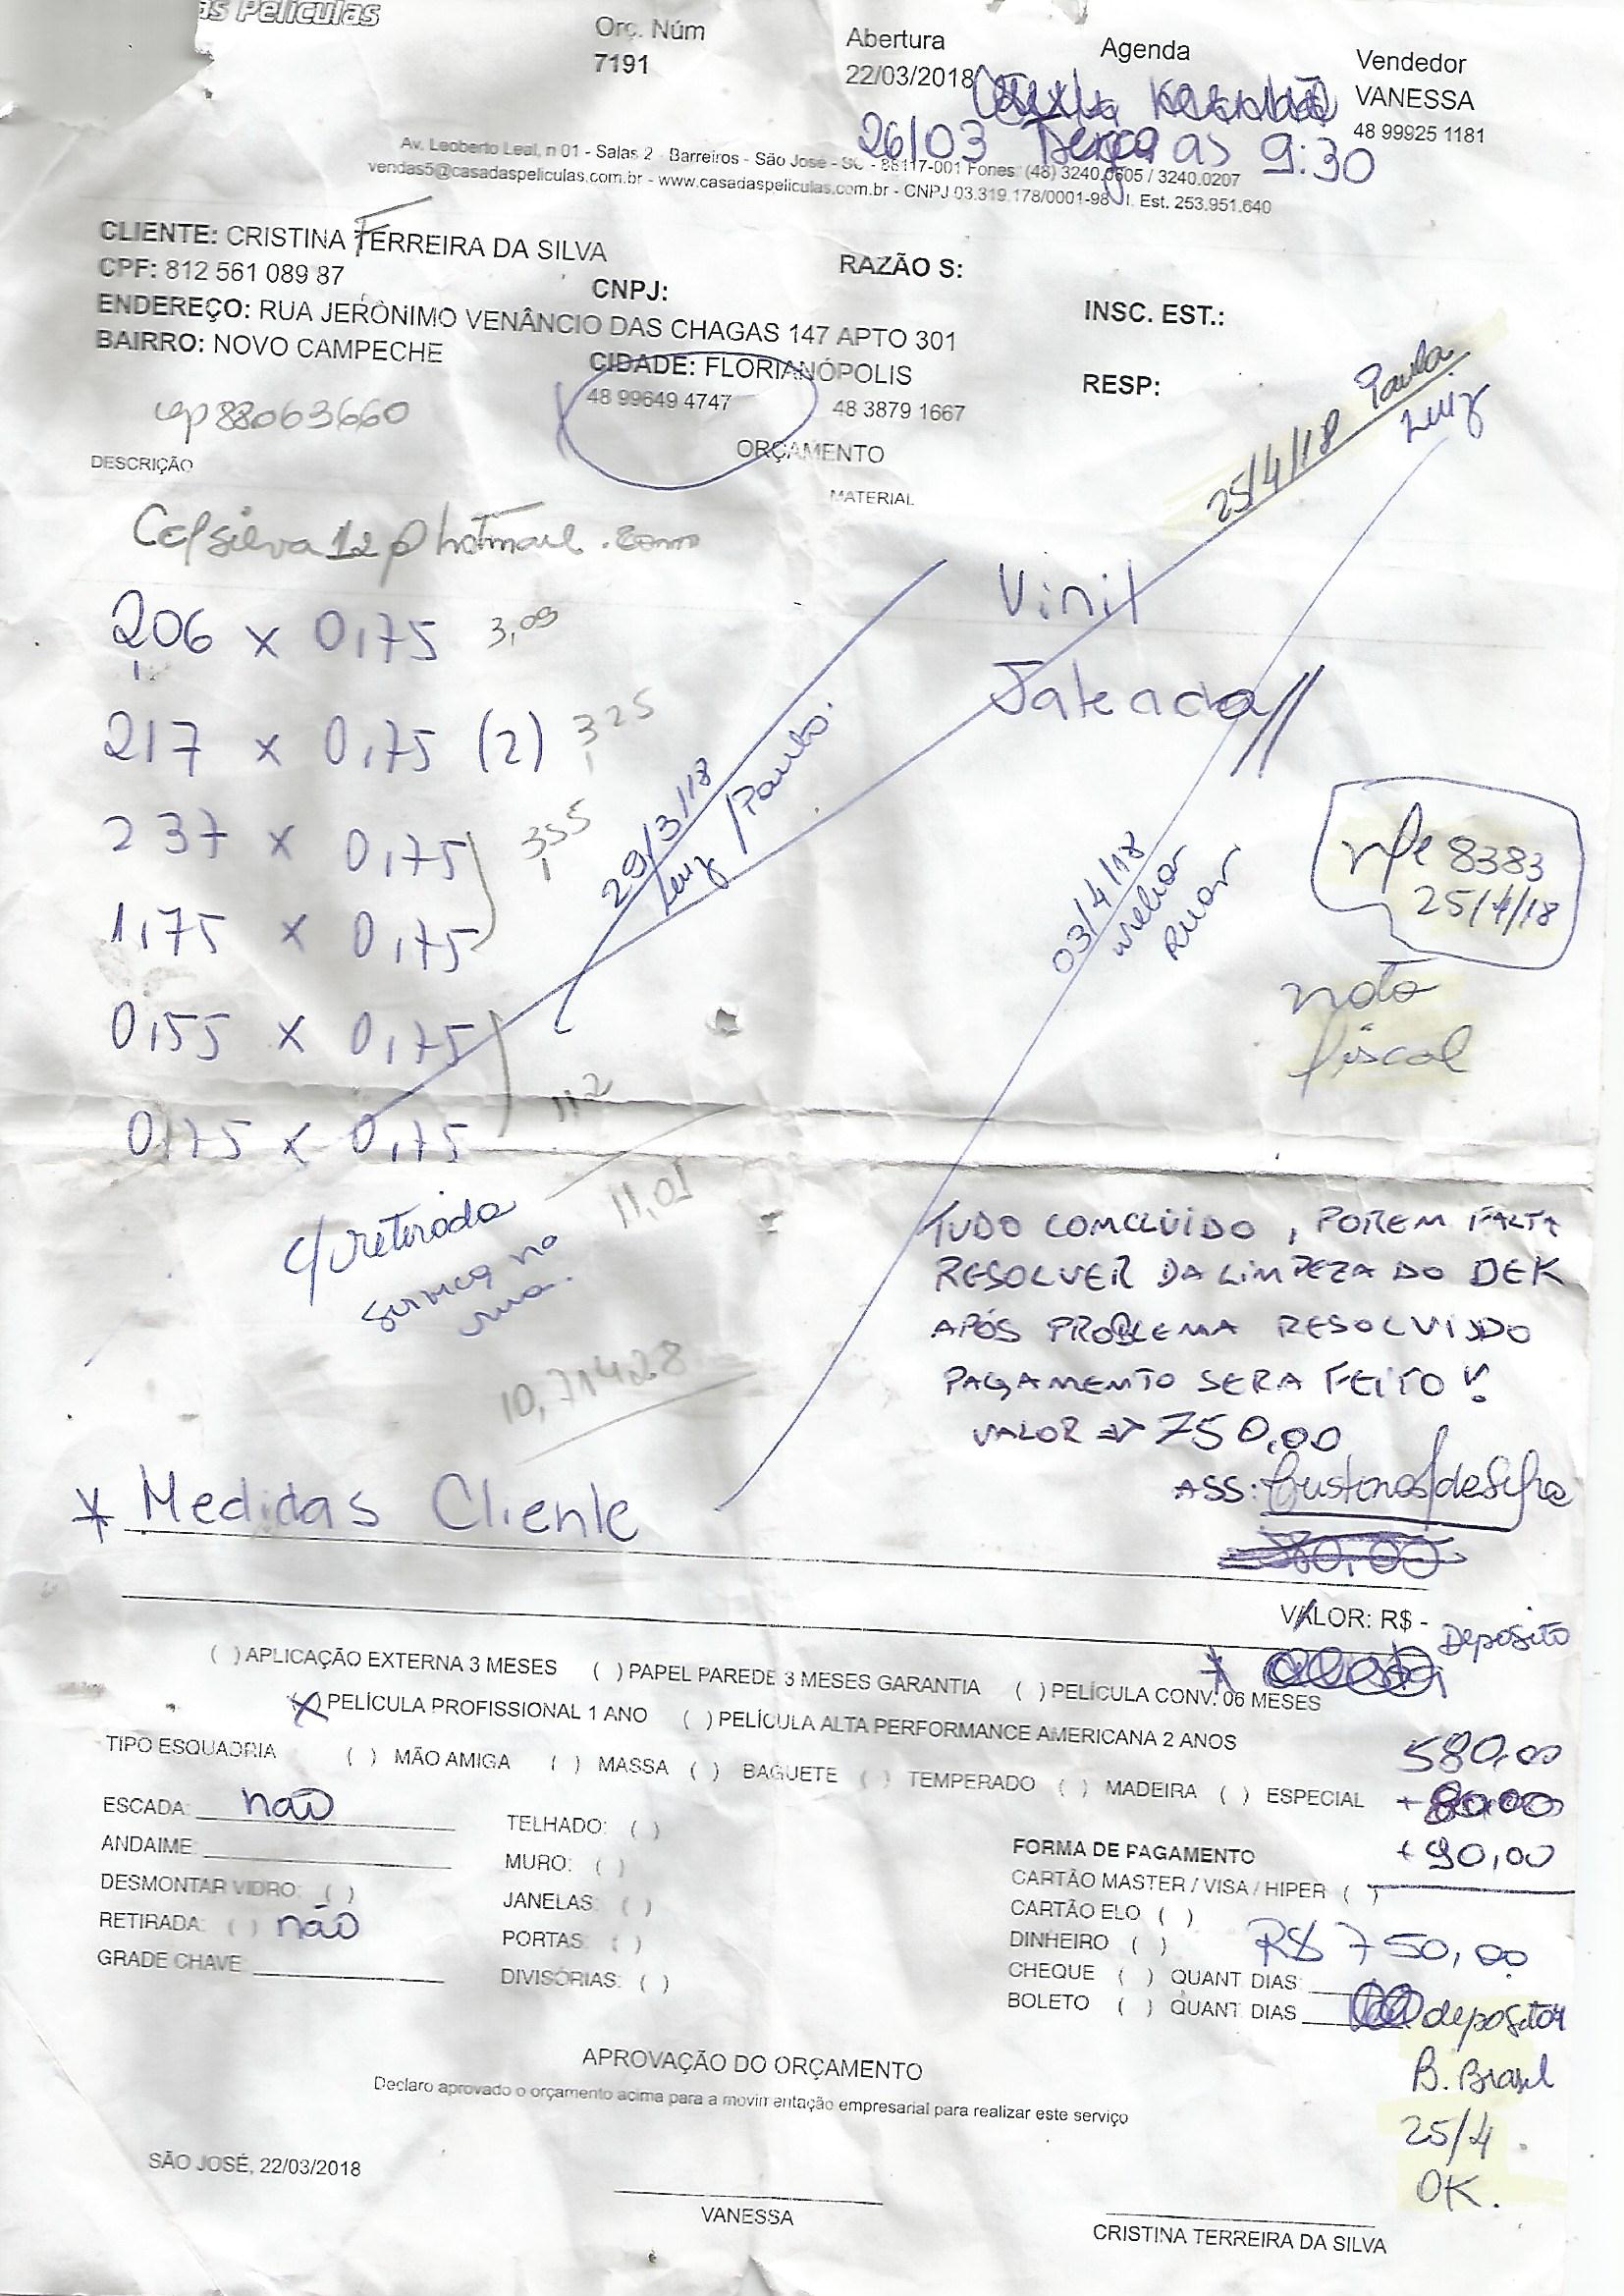 as Películas
Orç. Núm
7191
Abertura
22/03/2018
Agenda
Vendedor
VANESSA
48 99925 1181
26/03 Terça as 9:30
Av. Leoberto Leal, n 01 - Salas 2 - Barreiros - São José - SC - 88117-001 Fones: (48) 3240.0605 / 3240.0207
vendas5@casadaspeliculas.com.br - www.casadaspeliculas.com.br - CNPJ 03.319.178/0001-98 I. Est. 253.951.640
CLIENTE: CRISTINA FERREIRA DA SILVA
CPF: 812 561 089 87
CNPJ:
RAZÃO S:
ENDEREÇO: RUA JERÔNIMO VENÂNCIO DAS CHAGAS 147 APTO 301
INSC. EST.:
BAIRRO: NOVO CAMPECHE
CIDADE: FLORIANÓPOLIS
RESP:
cep 88063660
48 99649 4747
48 3879 1667
25/4/18 Paulo
Luiz
ORÇAMENTO
DESCRIÇÃO
MATERIAL
Cefsilva12@hotmail.com
206 x 0,75 3,09
Vinil
Jateado
217 x 0,75 (2) 3,25
237 x 0,75 3,55
1,75 x 0,75
29/3/18
Luiz / Paulo
03/4/18
nfe 8383
25/4/18
nota
fiscal
0,55 x 0,75
0,75 x 0,75 1,12
11,01
c/ retirada
serviço na
rua.
10,71428
TUDO COMCLUIDO, POREM FALTA
RESOLVER DA LIMPEZA DO DEK
APÓS PROBLEMA RESOLVIDO
PAGAMENTO SERA FEITO !
VALOR → 750,00
ASS:
* Medidas Cliente
VALOR: R$ -
Deposito
( ) APLICAÇÃO EXTERNA 3 MESES ( ) PAPEL PAREDE 3 MESES GARANTIA ( ) PELÍCULA CONV. 06 MESES
(X) PELÍCULA PROFISSIONAL 1 ANO ( ) PELÍCULA ALTA PERFORMANCE AMERICANA 2 ANOS
TIPO ESQUADRIA ( ) MÃO AMIGA ( ) MASSA ( ) BAGUETE ( ) TEMPERADO ( ) MADEIRA ( ) ESPECIAL
580,00
+ 80,00
+ 90,00
R$ 750,00
ESCADA: não
ANDAIME:
DESMONTAR VIDRO: ( )
RETIRADA: ( ) não
GRADE CHAVE:
TELHADO: ( )
MURO: ( )
JANELAS: ( )
PORTAS: ( )
DIVISÓRIAS: ( )
FORMA DE PAGAMENTO
CARTÃO MASTER / VISA / HIPER ( )
CARTÃO ELO ( )
DINHEIRO ( )
CHEQUE ( ) QUANT DIAS:
BOLETO ( ) QUANT DIAS
B. Brasil
25/4
OK.
APROVAÇÃO DO ORÇAMENTO
Declaro aprovado o orçamento acima para a movimentação empresarial para realizar este serviço
SÃO JOSÉ, 22/03/2018
VANESSA
CRISTINA TERREIRA DA SILVA